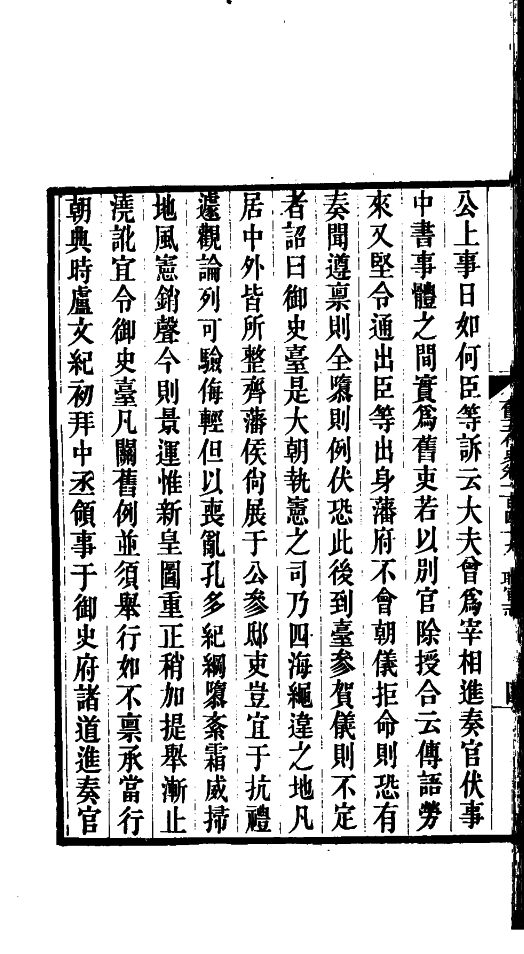 公上事日如何臣等訴云大夫曾爲宰相進奏官伏事
中書事體之間實爲舊吏若以别官除授合云傳語勞
來又堅令通出臣等出身藩府不會朝儀拒命則恐有
奏聞遵稟則全隳則例伏恐此後到臺參賀儀則不定
者詔曰御史臺是大朝執憲之司乃四海繩違之地凡
居中外皆所整齊藩侯尙展于公參邸吏豈宜于抗禮
遽觀論列可驗侮輕但以喪亂孔多紀綱隳紊霜威掃
地風憲銷聲今則景運惟新皇圖重正稍加提舉漸止
澆訛宜令御史臺凡關舊例並須舉行如不稟承當行
朝典時盧文紀初拜中丞領事于御史府諸道進奏官